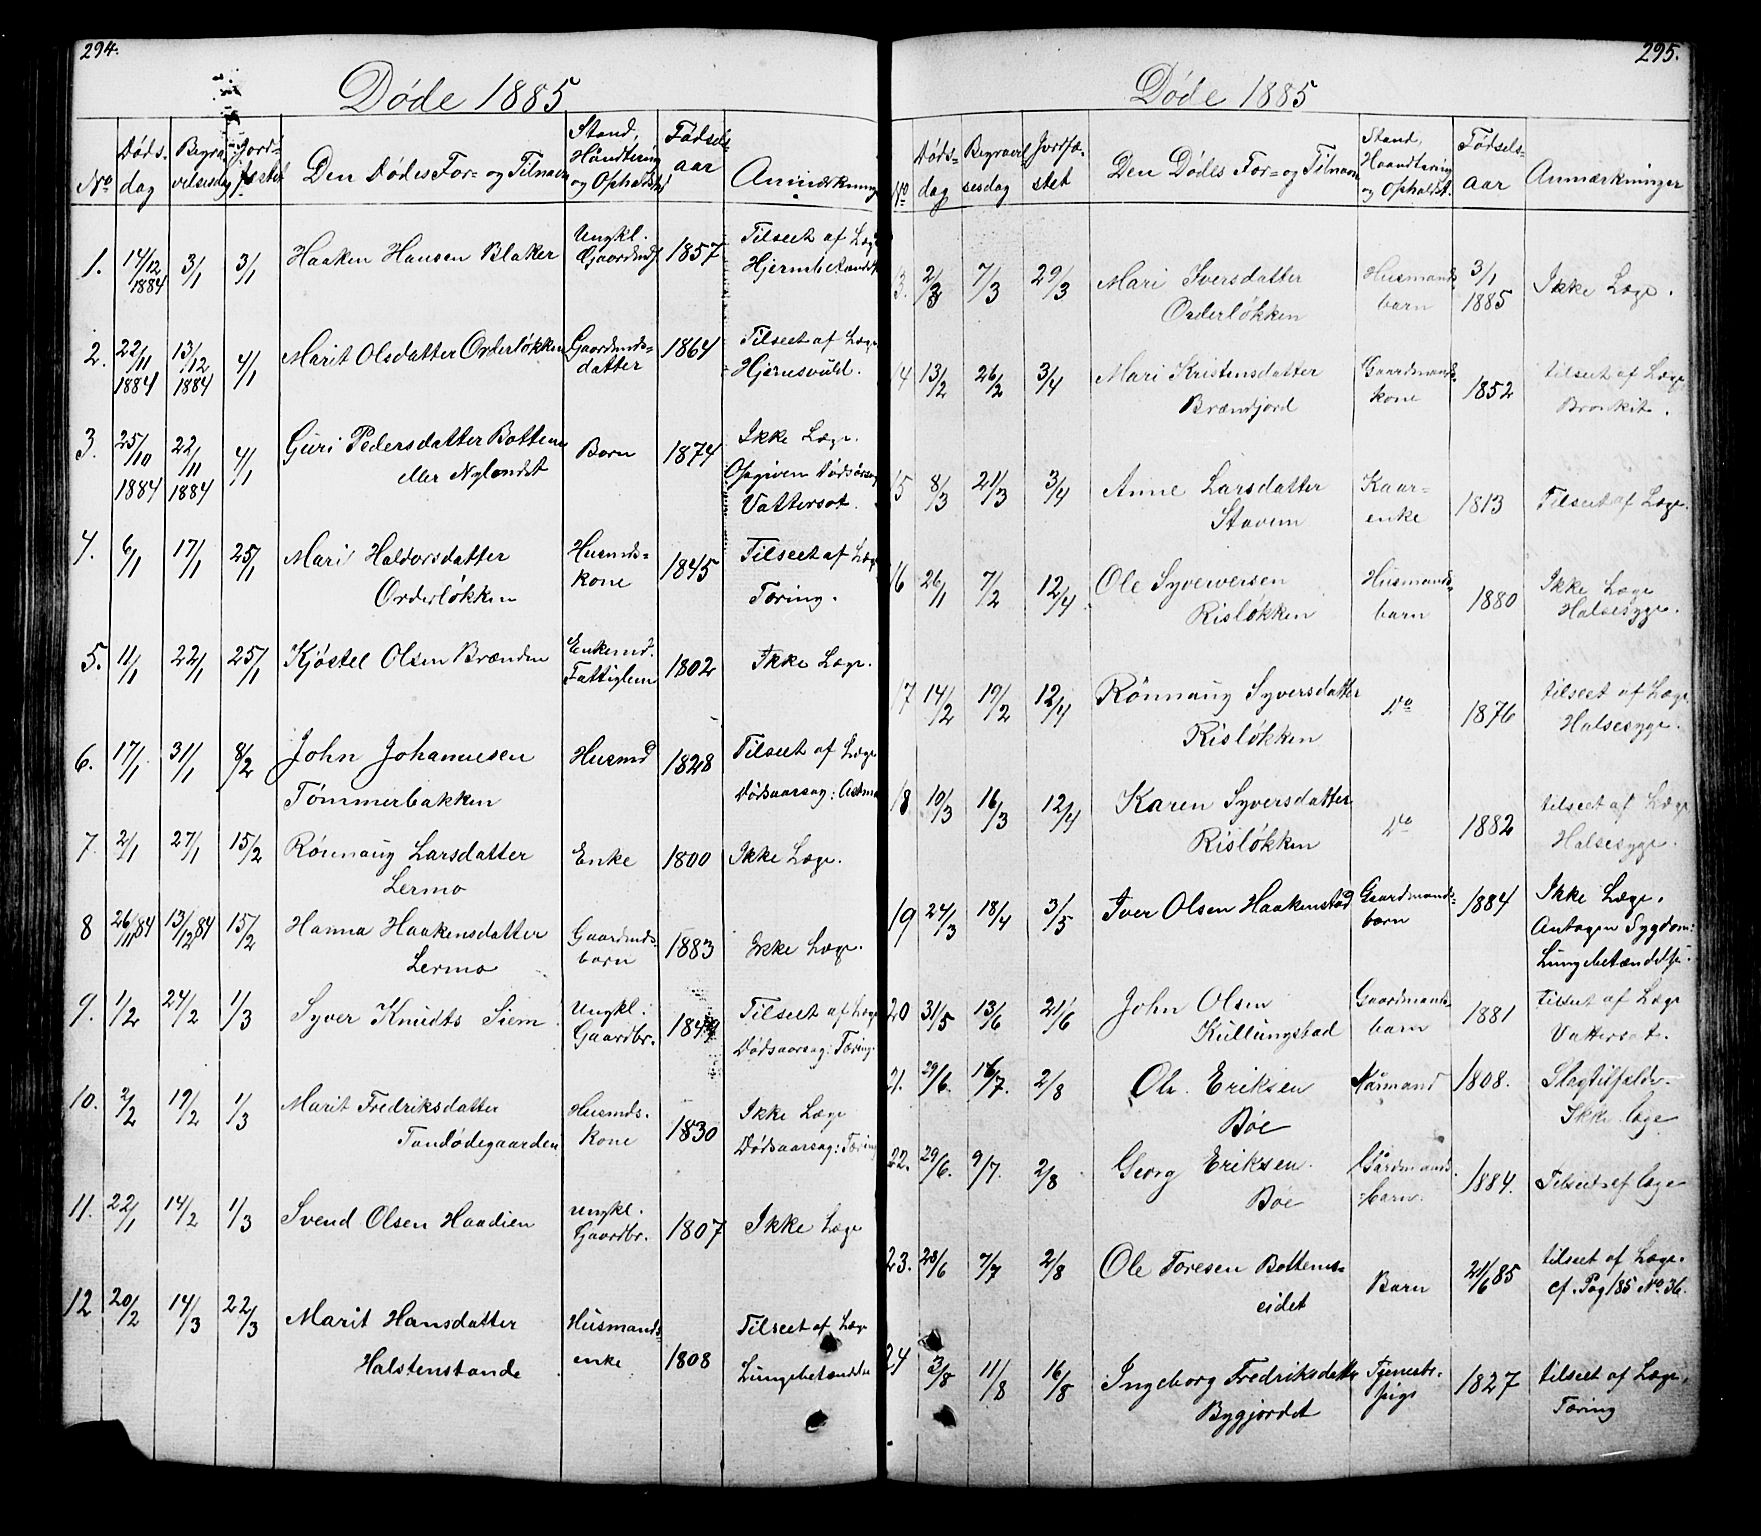 294.
Døde 1885
No
Døds-
dag
Begra-
velsesdag
Jord-
fæstet
Den Dødes For- og Tilnavn
Stand,
Haandtering
og Opholdst.
Fødsels-
aar
Anmærkning
1. 14/12 1884 3/1 3/1 Haaken Hansen Blaker Ungkl. Gaardmds 1857 Tilseet af Læge
Hjernebetændt
2. 22/11 1884 13/12 1884 4/1 Marit Olsdatter Orderløkken Gaardmds-
datter 1864 Tilseet af Læge
Hjernesvuld.
3. 25/10 1884 22/11 1884 4/1 Guri Pedersdatter Bottem
eller Nylændet Barn 1874 Ikke Læge.
Opgiven Dødsårsag
Vattersot.
4. 6/1 17/1 25/1 Mari Haldorsdatter
Orderløkken Husmds-
kone 1845 Tilseet af Læge
Tæring.
5. 11/1 22/1 25/1 Kjøstel Olsen Brænden Enkemd.
Fattiglem 1802 Ikke Læge.
6. 17/1 31/1 8/2 John Johannesen
Tømmerbakken Husmd 1828 Tilseet af Læge
Dødsaarsag: Astma
7. 2/1 27/1 15/2 Rønnaug Larsdatter
Lermo Enke 1800 Ikke Læge.
8 26/11 84 13/12 84 15/2 Hanna Haakensdatter
Lermo Gaardmds-
barn 1883 Ikke Læge.
9. 1/2 24/2 1/3 Syver Knudts Siem Ungkl.
Gaardbr. Tilseet af Læge
Dødsaarsag: Tæring.
10. 2/2 19/2 1/3 Marit Fredriksdatter
Tandødegaarden Husmds.
kone 1830 Ikke Læge
Dødsaarsag: Tæring
11. 22/1 14/2 1/3 Svend Olsen Haadien Ungkl.
Gaardbr. 1807 Ikke Læge
12 20/2 14/3 22/3 Marit Hansdatter
Halstenstande Husmands
enke 1808 Tilseet af Læge
Lungebetændelse
295.
Døde 1885
No
Døds-
dag
Begravel-
sesdag
Jordfæ-
stet
Den Dødes For- og Tilnavn
Stand,
Haandtering
og Opholdst.
Fødsels-
aar
Anmærkninger
3. 2/3 7/3 29/3 Mari Iversdatter
Orderløkken Husmands
barn 3/1
1885 Ikke Læge.
4 13/2 26/2 3/4 Mari Kristensdatter
Brændjord Gaardmands-
kone 1852 tilseet af Læge
Bronkit.
5 8/3 21/3 3/4 Anne Larsdatter
Stavem Kaar-
enke 1813 Tilseet af Læge.
16 26/1 7/2 12/4 Ole Syverersen
Risløkken Husmands-
barn 1880 Ikke Læge
Halsesyge.
17 14/2 19/2 12/4 Rønnaug Syversdatter
Risløkken Do 1876 tilseet af Læge
Halsesyge.
18 10/3 16/3 12/4 Karen Syversdatter
Risløkken Do 1882 tilseet af Læge
Halsesyge.
19 24/3 18/4 3/5 Iver Olsen Haakenstad Gaardmands-
barn 1884 Ikke Læge.
Antagen Sygdom:
Lungebetændelse.
20 31/5 13/6 21/6 John Olsen
Kullungsbad Gaardmands
barn 1881 Tilseet af Læge
Vattersot.
21. 29/6. 16/7. 2/8 Ole Eriksen
Bøe Kårmand 1808. Slagtilfælde.
Ikke læge
22. 29/6. 9/7. 2/8 Georg Eriksen.
Bøe Gårdmands.
barn. 1884. Tilseet af læge
23. 28/6 7/7 2/8 Ole Toresen Bottems-
eidet Barn 21/6 85 tilseet af Læge.
cf. Pag 185 No. 36.
24 3/8 11/8 16/8 Ingeborg Fredriksdatter
Bygjordet Tjeneste-
pige 1827 tilseet af Læge,
Tæring